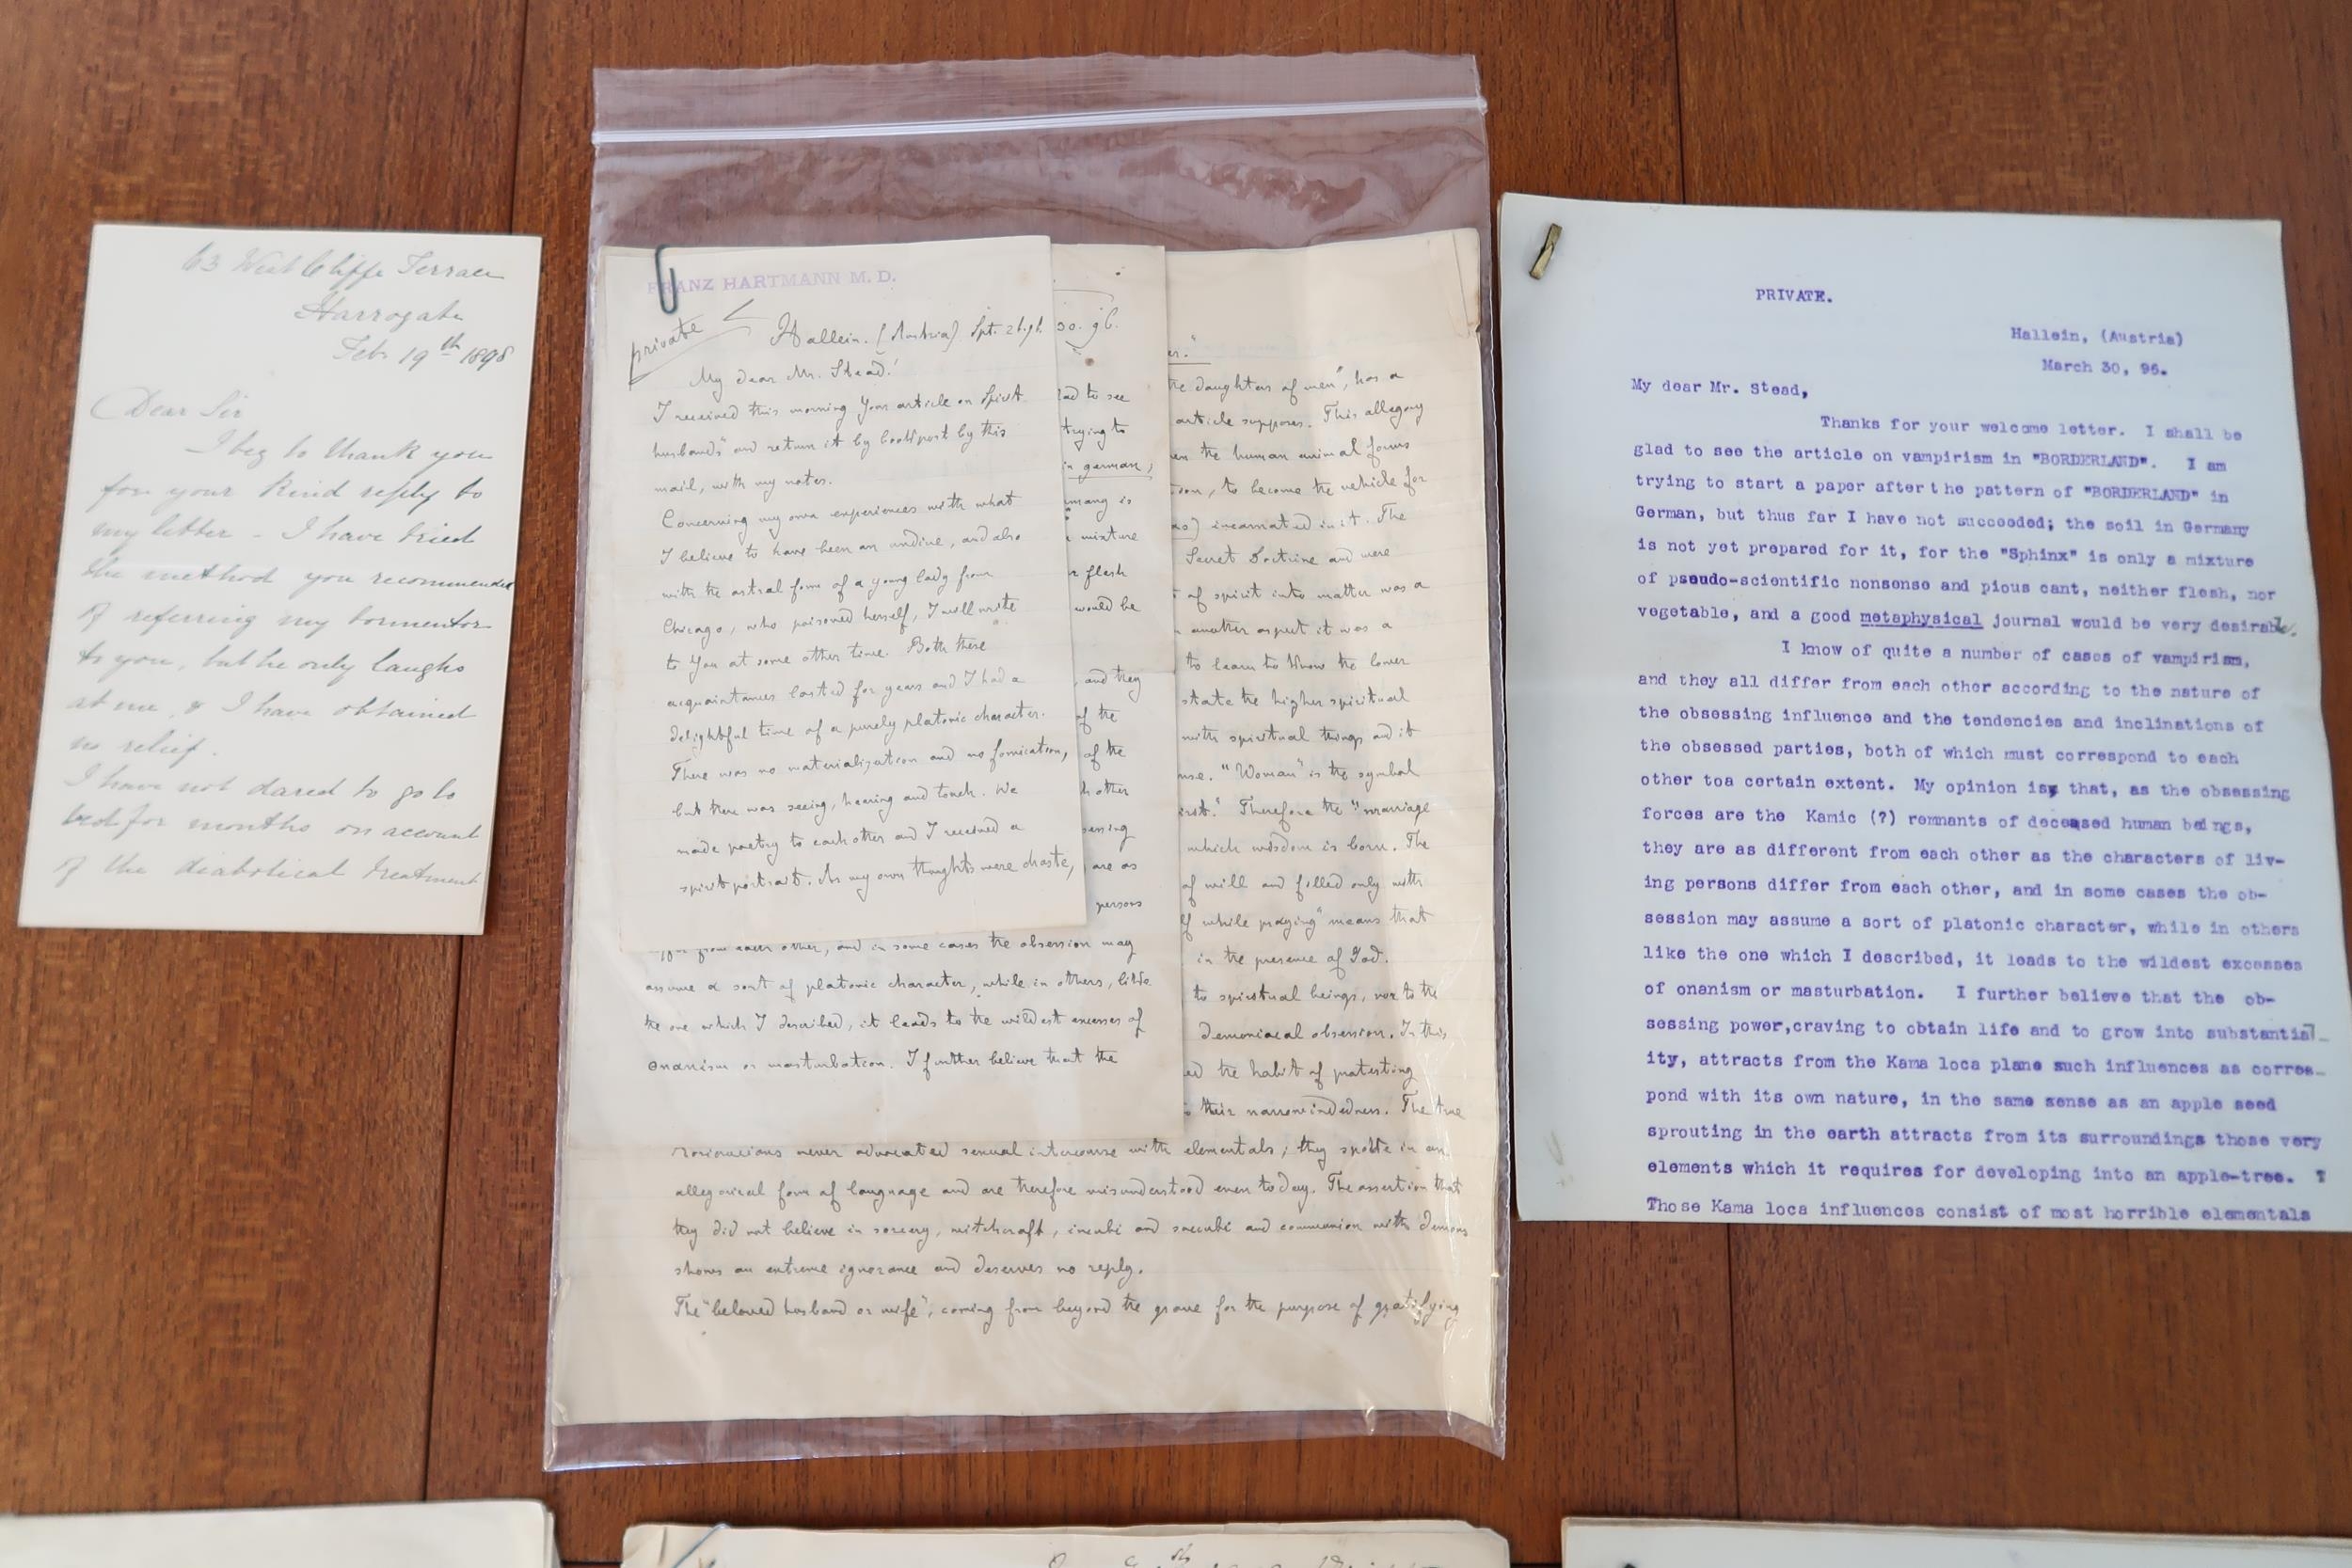 63 West Cliffe Terrace
Harrogate
Feb 19th 1898
Dear Sir
I beg to thank you
for your kind reply to
my letter - I have tried
the method you recommended
of referring my tormentor
to you, but he only laughs
at me, & I have obtained
no relief.
I have not dared to go to
bed for months on account
of the diabolical treatment
FRANZ HARTMANN M. D.
private
Hallein. (Austria) Spt. 2
My dear Mr. Stead!
I received this morning your article on Spirit
husbands" and return it by bookpost by this
mail, with my notes.
Concerning my own experiences with what
I believe to have been an undine, and also
with the astral form of a young lady from
Chicago, who poisoned herself, I will write
to you at some other time. Both these
acquaintances lasted for years and I had a
delightful time of a purely platonic character.
There was no materialization and no fornication,
but there was seeing, hearing and touch. We
made poetry to each other and I received a
spirit portrait. As my own thoughts were chaste,
30. 96.
lad to see
trying to
in german,
mang is
mixture
r flesh
would be
, and they
of the
of the
h other
sessing
are as
persons
from each other, and in some cases the obsession may
assume a sort of platonic character, while in others, like
the one which I described, it leads to the wildest excesses of
onanism or masturbation. I further believe that the
er."
the daughters of men", has a
article supposes. This allegory
en the human animal forms
ion, to become the vehicle for
as) incarnated in it. The
Secret Doctrine and were
of spirit into matter was a
another aspect it was a
to learn to know the lower
state the higher spiritual
with spiritual things and it
nse. "Woman" is the symbol
irit." Therefore the "marriage
which wisdom is born. The
of will and filled only with
lf while praying" means that
in the presence of God.
to spiritual beings, nor to the
demoniacal obsession. In this
ed the habit of protesting
to their narrowmindedness. The true
rosicrucians never advocated sexual intercourse with elementals; they spoke in an
allegorical form of language and are therefore misunderstood even to day. The assertion that
they did not believe in sorcery, witchcraft, incubi and succubi and communion with demons
shows an extreme ignorance and deserves no reply.
The "beloved husband or wife", coming from beyond the grave for the purpose of gratifying
PRIVATE.
Hallein, (Austria)
March 30, 96.
My dear Mr. Stead,
Thanks for your welcome letter. I shall be
glad to see the article on vampirism in "BORDERLAND". I am
trying to start a paper after the pattern of "BORDERLAND" in
German, but thus far I have not succeeded; the soil in Germany
is not yet prepared for it, for the "Sphinx" is only a mixture
of pseudo-scientific nonsense and pious cant, neither flesh, nor
vegetable, and a good metaphysical journal would be very desirable.
I know of quite a number of cases of vampirism,
and they all differ from each other according to the nature of
the obsessing influence and the tendencies and inclinations of
the obsessed parties, both of which must correspond to each
other toa certain extent. My opinion is, that, as the obsessing
forces are the Kamic (?) remnants of deceased human beings,
they are as different from each other as the characters of liv-
ing persons differ from each other, and in some cases the ob-
session may assume a sort of platonic character, while in others
like the one which I described, it leads to the wildest excesses
of onanism or masturbation. I further believe that the ob-
sessing power,craving to obtain life and to grow into substantial-
ity, attracts from the Kama loca plane such influences as corres-
pond with its own nature, in the same sense as an apple seed
sprouting in the earth attracts from its surroundings those very
elements which it requires for developing into an apple-tree.
Those Kama loca influences consist of most horrible elementals